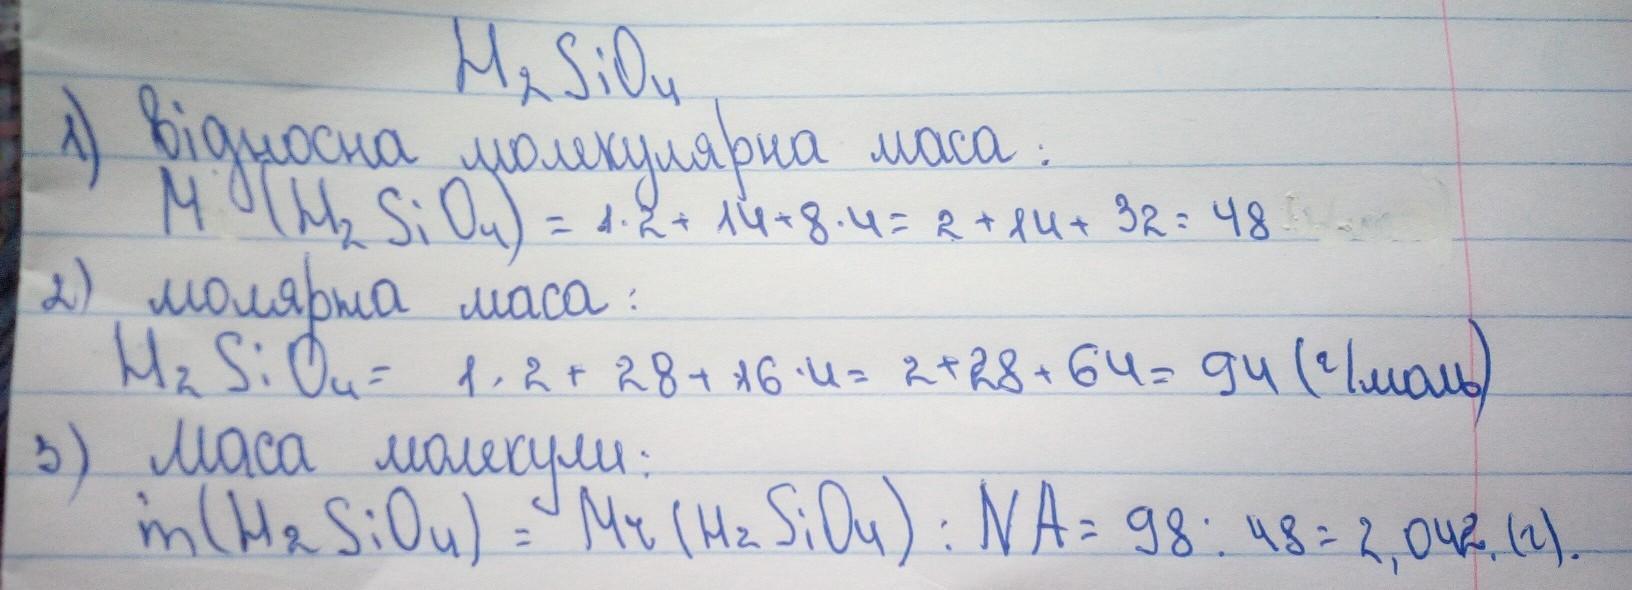 H₂SiO₄
1) Відносна молекулярна маса:
M (H₂SiO₄) = 1·2 + 14 + 8·4 = 2 + 14 + 32 = 48
2) молярна маса:
H₂SiO₄ = 1·2 + 28 + 16·4 = 2 + 28 + 64 = 94 (г/моль)
3) Маса молекули:
m(H₂SiO₄) = Mr (H₂SiO₄) : NA = 98 : 48 = 2,042 (г).